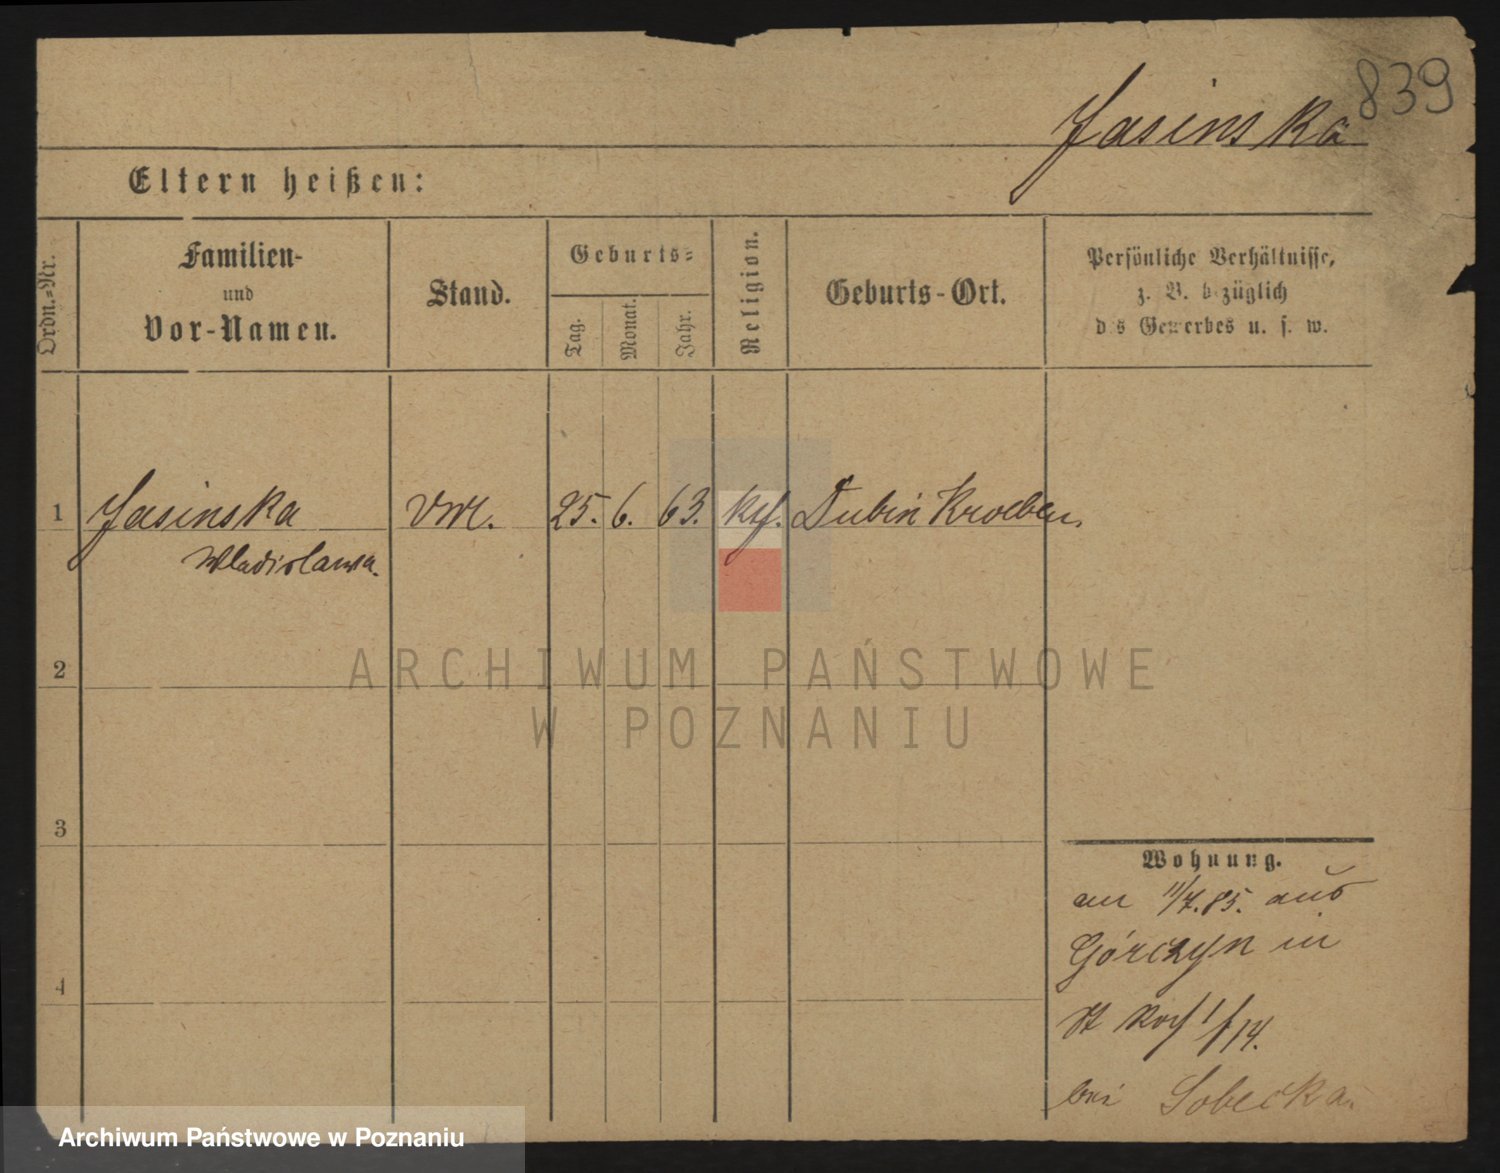 839
Jasinska
Eltern heißen:
Ordn.-Nr.
Familien-
und
Vor-Namen.
Stand.
Geburts-
Tag.
Monat.
Jahr.
Religion.
Geburts-Ort.
Persönliche Verhältnisse,
z. B. bezüglich
des Gewerbes u. s. w.
1 Jasinska
Wladislawa.
25. 6. 63. kth. Dubin Kroeben.
2
3
4
Wohnung.
am 11/7.85. aus
Górczyn in
St
bei Sobecka.
ARCHIWUM PAŃSTWOWE
W POZNANIU
Archiwum Państwowe w Poznaniu